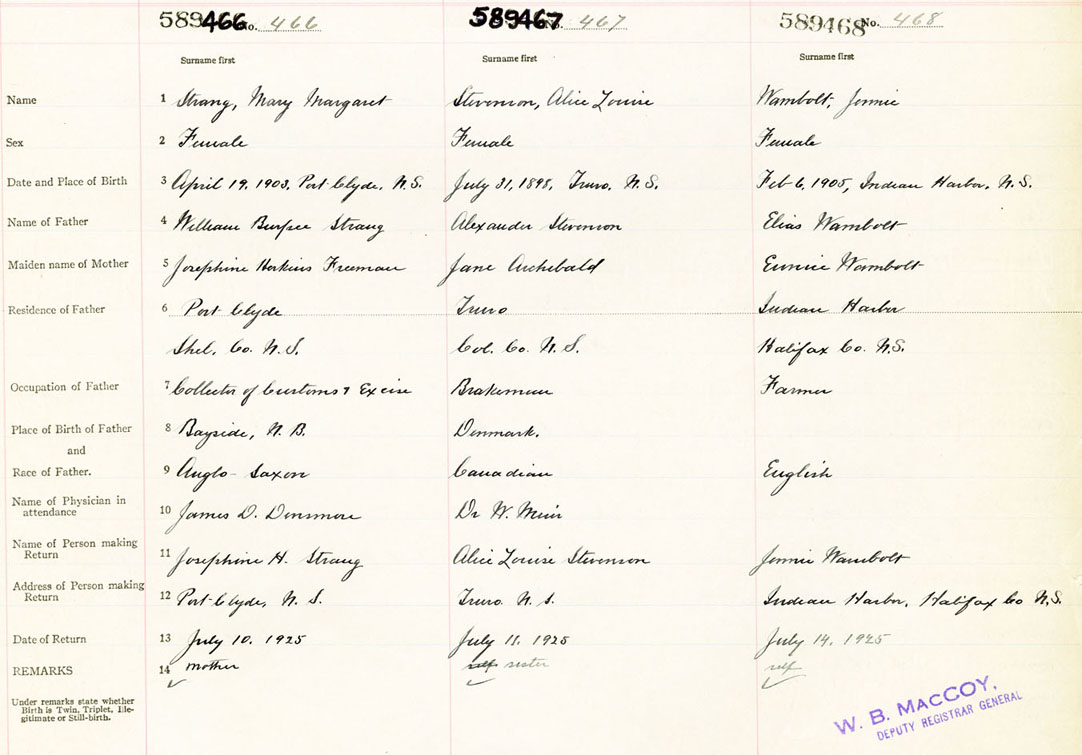 589466 No. 466 589467 No. 467 589468 No. 468
Surname first Surname first Surname first
Name 1 Strang, Mary Margaret Stevenson, Alice Louise Wambolt, Jennie
Sex 2 Female Female Female
Date and Place of Birth 3 April 19, 1903, Port Clyde, N.S. July 31, 1898, Truro, N.S. Feb 6, 1905, Indian Harbor, N.S.
Name of Father 4 William Burpee Strang Alexander Stevenson Elias Wambolt
Maiden name of Mother 5 Josephine Hopkins Freeman Jane Archibald Eunice Wambolt
Residence of Father 6 Port Clyde Truro Indian Harbor
Shel. Co. N.S. Col. Co. N.S. Halifax Co. N.S.
Occupation of Father 7 Collector of Customs & Excise Brakeman Farmer
Place of Birth of Father 8 Bayside, N.B. Denmark.
and
Race of Father. 9 Anglo-Saxon Canadian English
Name of Physician in
attendance 10 James D. Densmore Dr W. Muir
Name of Person making
Return 11 Josephine H. Strang Alice Louise Stevenson Jennie Wambolt
Address of Person making
Return 12 Port-Clyde, N.S. Truro N.S. Indian Harbor, Halifax Co N.S.
Date of Return 13 July 10, 1925 July 11, 1925 July 14, 1925
REMARKS 14 mother self sister self
Under remarks state whether
Birth is Twin, Triplet, Ille-
gitimate or Still-birth.
W. B. MACCOY,
DEPUTY REGISTRAR GENERAL